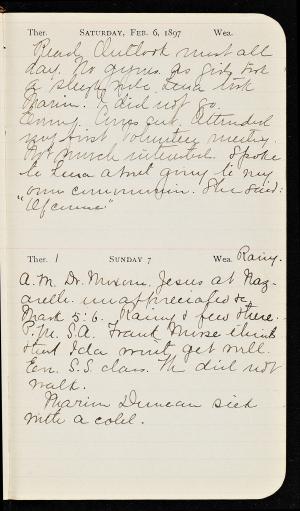 Ther. SATURDAY, FEB. 6, 1897 Wea.
Read Outlook most all
day. No gym. as girls took
a sleigh ride. Lena took
Marion. I did not go.
Evening. Attended
my first Volunteer meeting.
Not much interested. Spoke
to Lena about going to my
own communion. She said:
"Of course"
Ther. 1 SUNDAY 7 Wea. Rainy.
A.M. Dr. Moxom. Jesus at Naz-
areth. unappreciated
Mark 5:6. Rainy & few there.
P.M. S.A. Frank Morse thinks
that Ida won't get well.
Eve. S.S. class. M did not
walk.
Marion Duncan sick
with a cold.